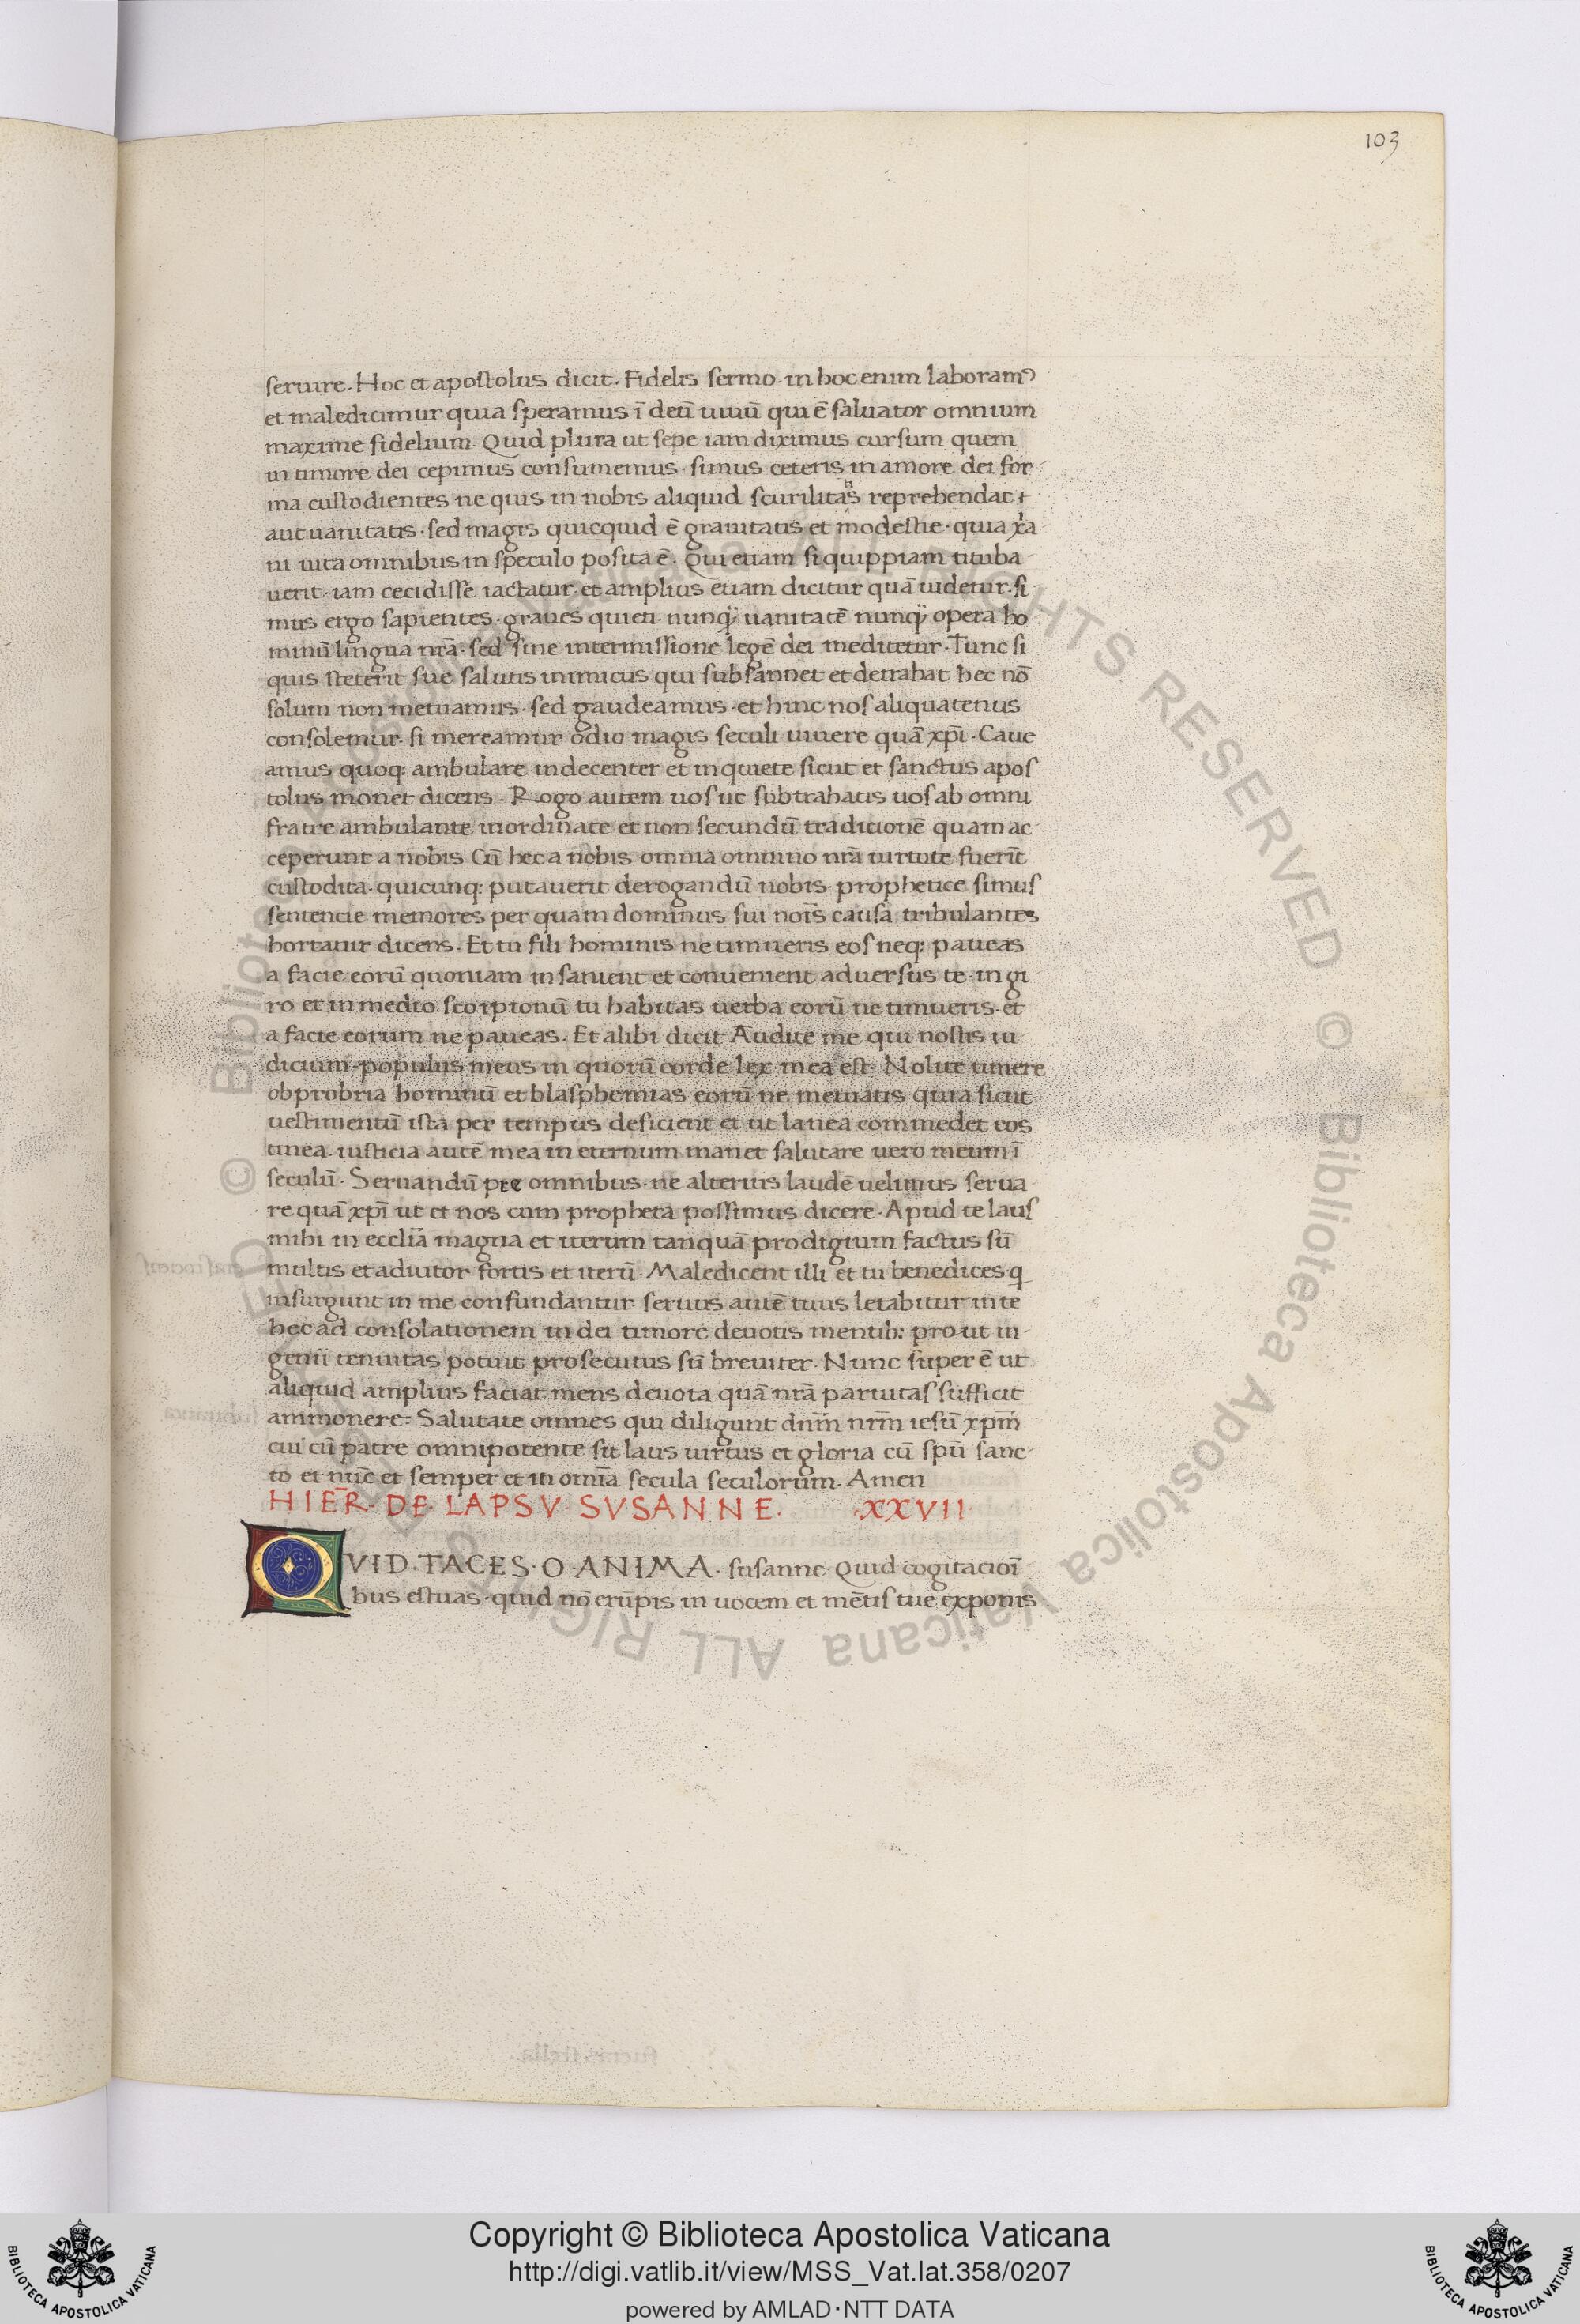 103
seruire. Hoc et apostolus dicit. Fidelis sermo. in hoc enim laboramꝰ
et maledicimur quia speramus ī deū uiuū qui ē saluator omnium
maxime fidelium. Quid plura ut sepe iam diximus cursum quem
in timore dei cepimus consumemus. simus ceteris in amore dei for
ma custodientes ne quis in nobis aliquid scurilitas reprehendat
aut uanitatis. sed magis quicquid ē grauitatis et modestie. quia xr̄a
ni uita omnibus in speculo posita ē. Qui etiam si quippiam tituba
uerit. iam cecidisse iactatur. et amplius etiam dicitur quā uidetur. si
mus ergo sapientes. graues quieti. nunq̄ uanitatē nunq̄ opera ho
minū lingua nrā. sed sine intermissione legē dei meditetur. Tunc si
quis steterit sue salutis inimicus qui subsannet et detrahat hec nō
solum non metuamus. sed gaudeamus. et hinc nos aliquatenus
consolemur. si mereamur odio magis seculi uiuere quā xp̄i. Caue
amus quoq: ambulare indecenter et inquiete sicut et sanctus apos
tolus monet dicens. Rogo autem uos ut subtrahatis uos ab omni
fratre ambulante inordinate et non secundū tradicionē quam ac
ceperunt a nobis Cū hec a nobis omnia omnino nrā uirtute fuerīt
custodita. quicunq: putauerit derogandū nobis. prophetice simus
sentencie memores per quam dominus sui noīs causa tribulantes
hortatur dicens. Et tu fili hominis ne timueris eos neq: paueas
a facie eorū quoniam insanient et conuenient aduersus te. in gi
ro et in medio scorpionū tu habitas uerba eorū ne timueris. et
a facie eorum ne paueas. Et alibi dicit Audite me qui nostis iu
dicium. populus meus in quorū corde lex mea est. Nolite timere
obprobria hominū et blasphemias eorū ne metuatis quia sicut
uestimentū ista per tempus deficient et ut lanea commedet eos
tinea. iusticia autē mea in eternum manet salutare uero meum ī
seculū. Seruandū pre omnibus. ne alterius laudē uelimus serua
re quā xp̄i ut et nos cum propheta possimus dicere. Apud te laus
mihi in ecclīa magna et iterum tanquā prodigium factus sū
multis et adiutor fortis et iterū. Maledicent illi et tu benedices q
insurgunt in me confundantur seruus autē tuus letabitur in te
hec ad consolationem in dei timore deuotis mentib: prout in
genii tenuitas potuit prosecutus sū breuiter. Nunc super ē ut
aliquid amplius faciat mens deuota quā nrā paruitas sufficit
ammonere. Salutate omnes qui diligunt dn̄m nr̄m iesū xp̄m
cui cū patre omnipotente sit laus uirtus et gloria cū spū sanc
to et nūc et semper et in omīa secula seculorum. Amen
HIER̄. DE. LAPSV. SVSANNE. .XXVII.
QVID. TACES. O. ANIMA. susanne Quid cogitacioī
bus estuas. quid nō erūpis in uocem et mētis tue exponis
Copyright © Biblioteca Apostolica Vaticana
http://digi.vatlib.it/view/MSS_Vat.lat.358/0207
powered by AMLAD·NTT DATA
BIBLIOTECA APOSTOLICA VATICANA
BIBLIOTECA APOSTOLICA VATICANA
© Biblioteca Apostolica Vaticana ALL RIGHTS RESERVED © Biblioteca Apostolica Vaticana ALL RIGHTS RESERVED